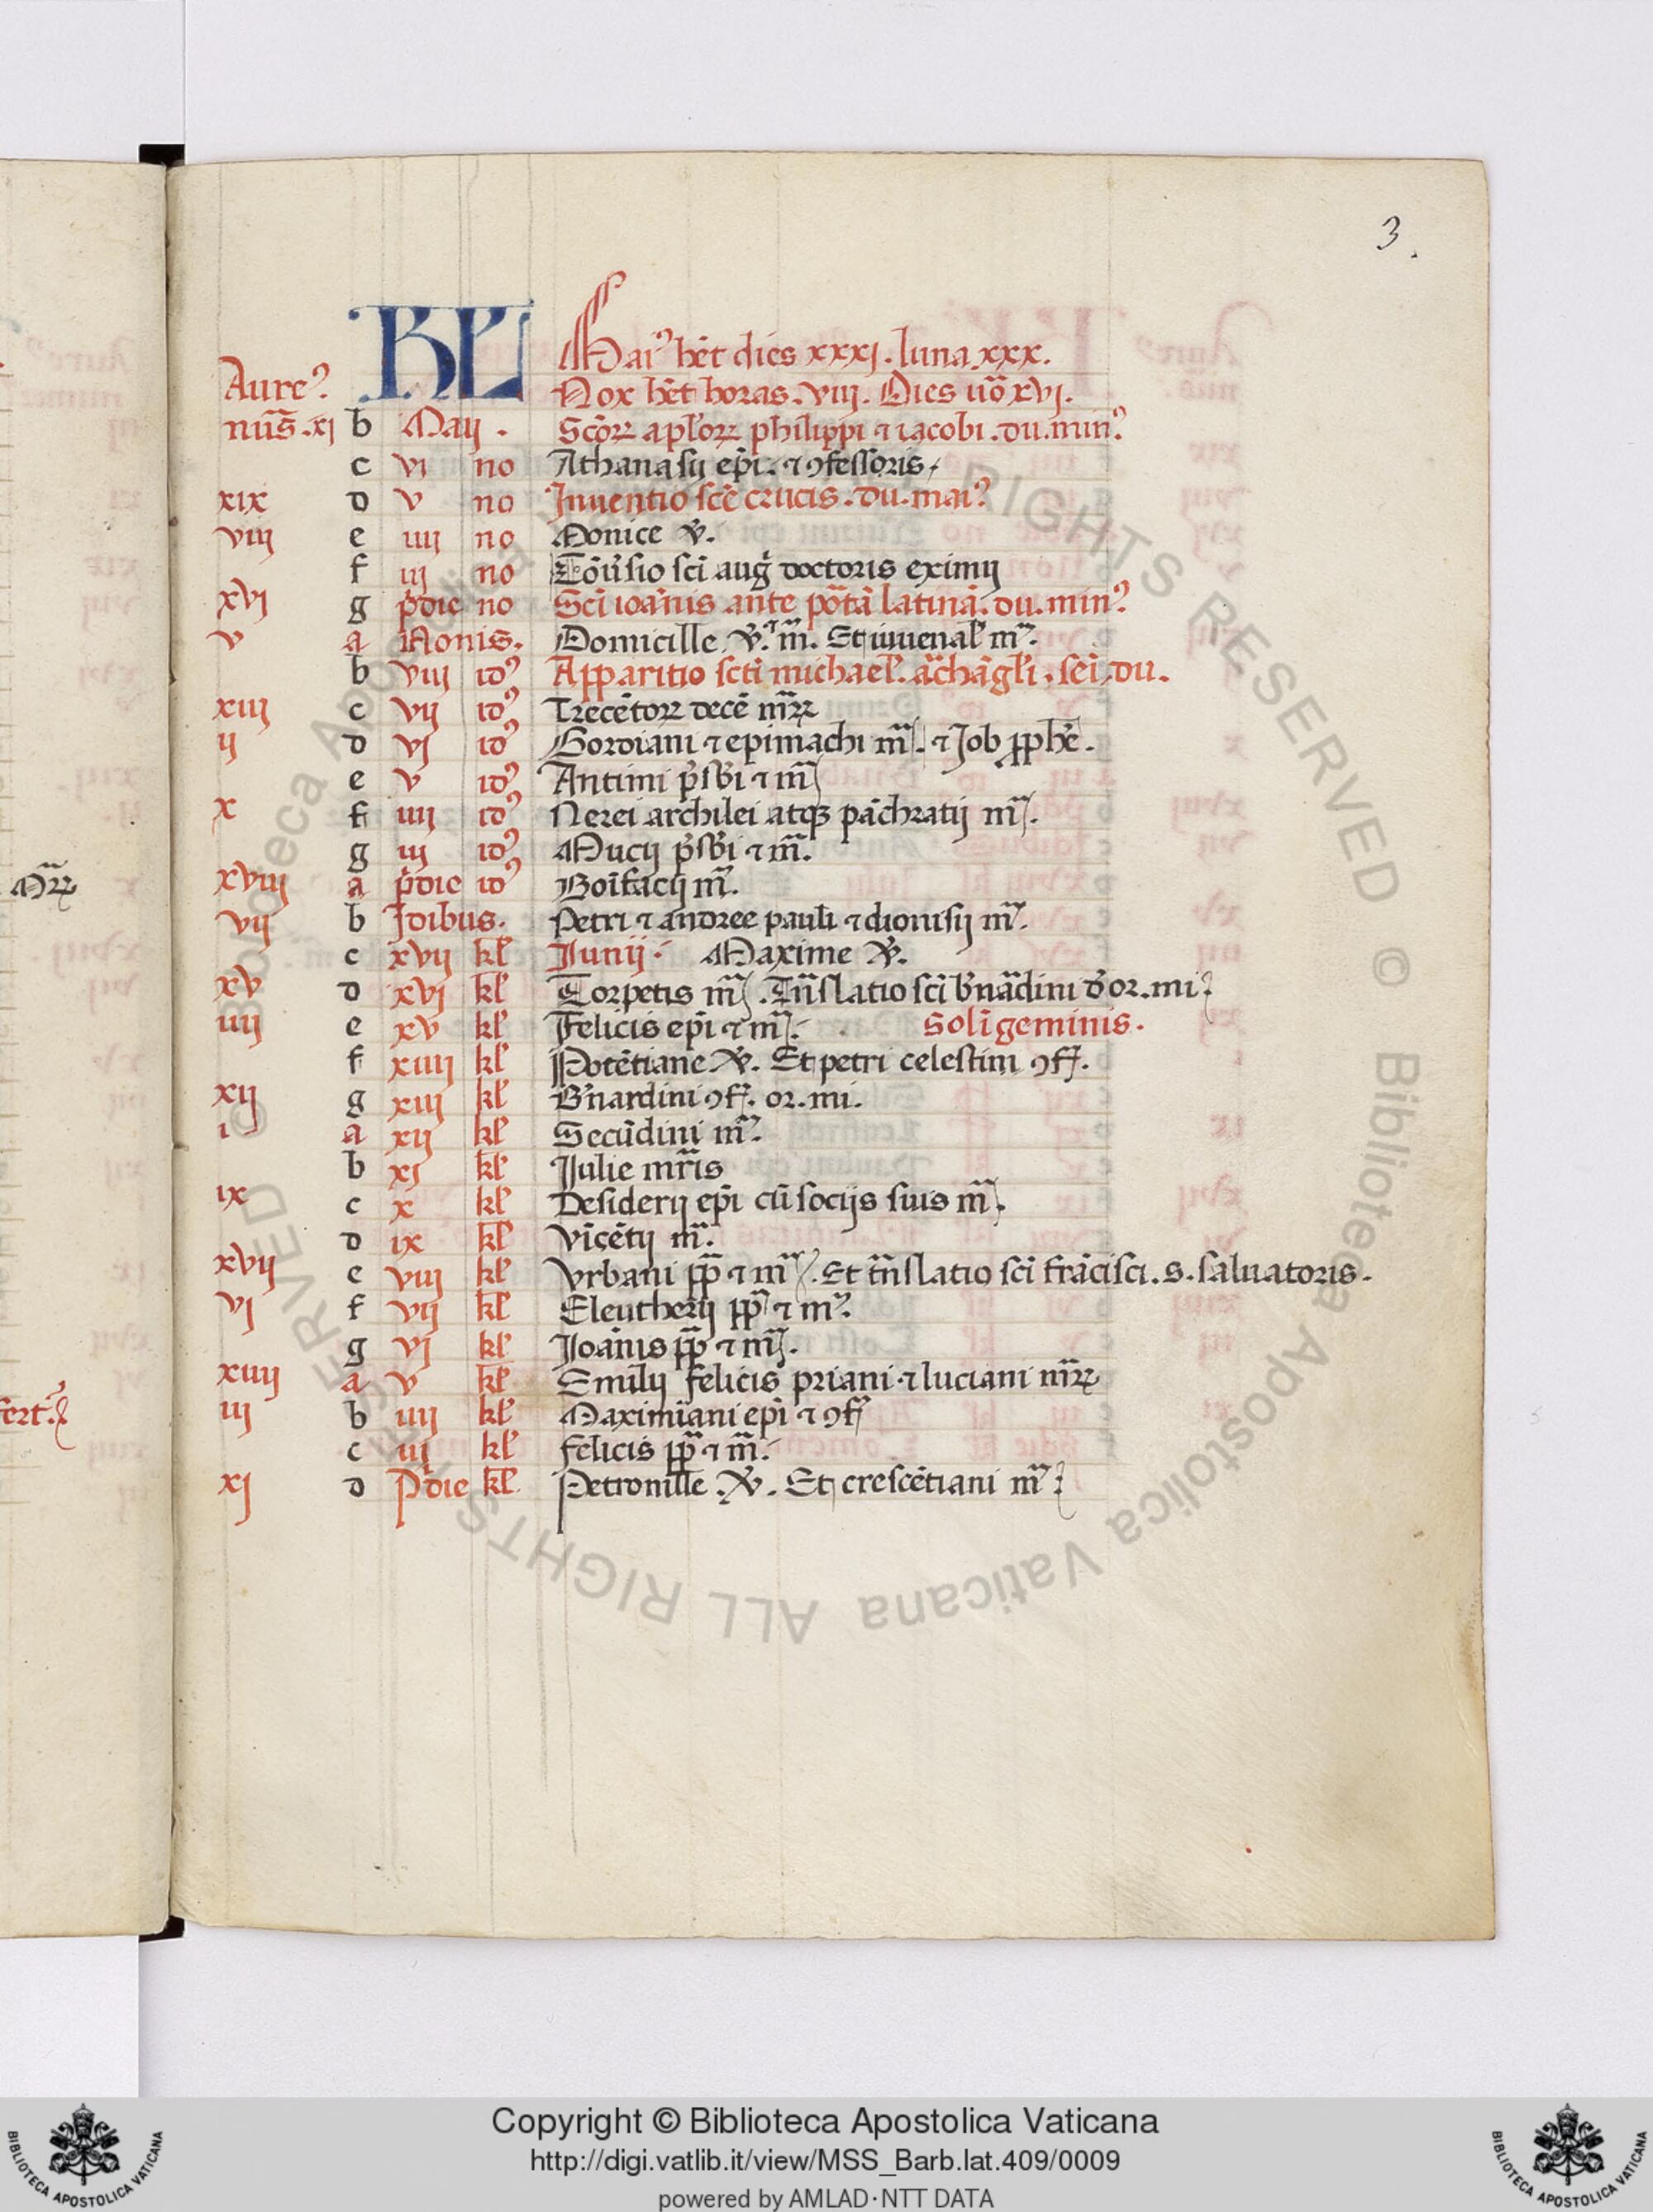 3.
KL Mai⁹ hēt dies xxxj. luna xxx.
Aure⁹ Nox hēt horas. viij. Dies uō xvj.
nūs. xj b Maij. Scōꝝ aplōꝝ philippi ⁊ iacobi. du. min⁹
c vi no Athanasij epī. ⁊ ꝯfessoris.
xix d v no Inuentio scē crucis. du. mai⁹
viij e iiij no Monice v̄.
f iij no Cōūsio scī auḡ doctoris eximij
xvj g p̄die no Scī ioānis ante pōtā latinā. du. min⁹
v a Nonis. Domicille v̄. ⁊ m̄. Et iuuenal' m̄.
b viij id⁹ Apparitio sctī michael'. ac̄hāgl'i. sei. du.
xiij c vij id⁹ Trecētoꝝ decē m̄rꝝ
ij d vj id⁹ Gordiani ⁊ epimachi m̄. ⁊ Job ꝓphē.
e v id⁹ Antimi p̄sb'i ⁊ m̄
x f iiij id⁹ Nerei archilei atqꝫ pāchratij m̄.
g iij id⁹ Mucij p̄sb'i ⁊ m̄.
xviij a p̄die id⁹ Boīfacij m̄.
vij b Idibus. Petri ⁊ andree pauli ⁊ dionisij m̄.
c xvij kl' Junij. Maxime v̄.
xv d xvj kl' Torpetis m̄. Trn̄slatio scī b'nardini d' or. mi⁹
iiij e xv kl' Felicis epī ⁊ m̄. Sol ī geminis.
f xiiij kl' Potētiane v̄. Et petri celestini ꝯf.
xij g xiij kl' B'nardini ꝯf. or. mi.
i a xij kl' Secūdini m̄.
b xj kl' Julie mr̄is
ix c x kl' Desiderij epī cū socijs suis m̄.
d ix kl' Vīcētij m̄.
xvij e viij kl' Vrbani pp̄ ⁊ m̄. Et trn̄slatio scī frācisci. S. saluatoris.
vj f vij kl' Eleutherij pp̄ ⁊ m̄.
g vj kl' Joānis pp̄ ⁊ m̄.
xiiij a v kl' Emilij felicis priani ⁊ luciani m̄rꝝ
iij b iiij kl' Maximiani epī ⁊ ꝯf
c iij kl' felicis pp̄ ⁊ m̄.
xj d P̄die kl' Petronille. v̄. Et crescētiani m̄
Mr̄ꝝ
Copyright © Biblioteca Apostolica Vaticana
http://digi.vatlib.it/view/MSS_Barb.lat.409/0009
powered by AMLAD·NTT DATA
BIBLIOTECA APOSTOLICA VATICANA
BIBLIOTECA APOSTOLICA VATICANA
© Biblioteca Apostolica Vaticana ALL RIGHTS RESERVED © Biblioteca Apostolica Vaticana ALL RIGHTS RESERVED